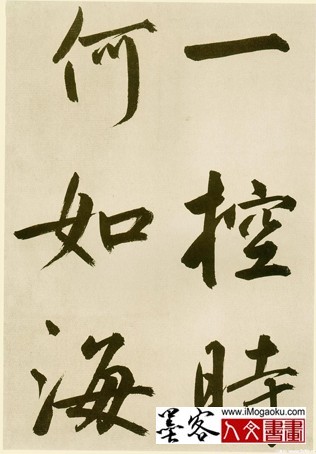 一控時
何如海
www.iMogaoku.com
墨客
人文書畫